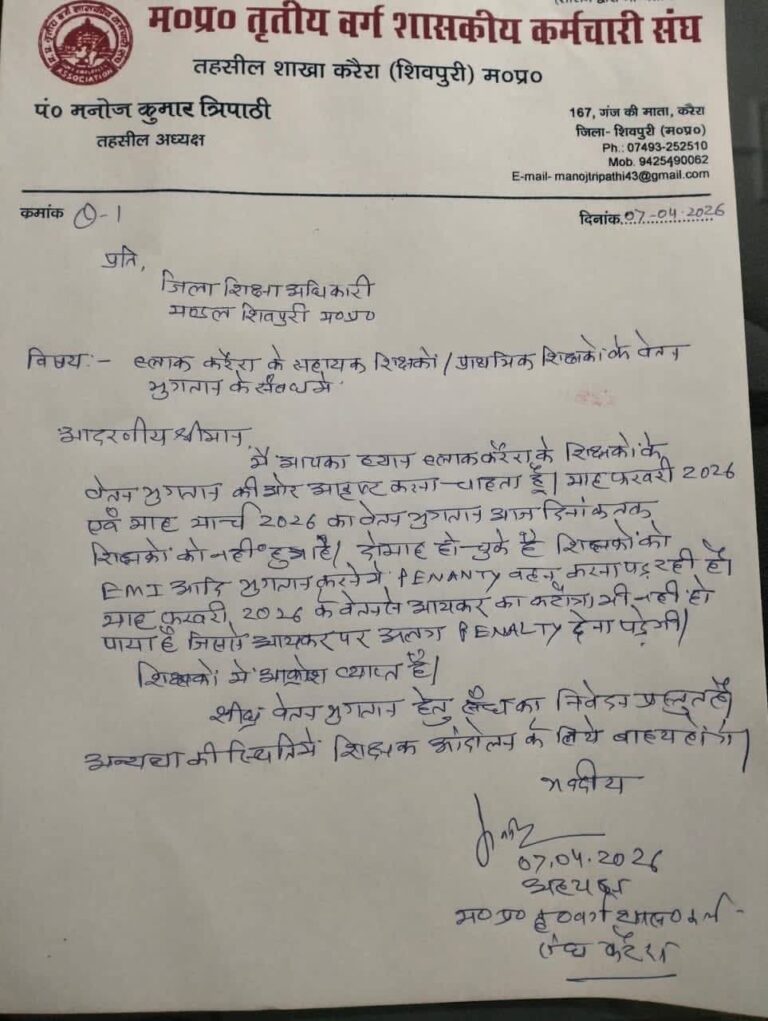 म०प्र० तृतीय वर्ग शासकीय कर्मचारी संघ
तहसील शाखा करैरा (शिवपुरी) म०प्र०
पं० मनोज कुमार त्रिपाठी
तहसील अध्यक्ष
167, गंज की माता, करैरा
जिला- शिवपुरी (म०प्र०)
Ph.: 07493-252510
Mob. 9425490062
E-mail- manojtripathi43@gmail.com
ASSOCIATION
कमांक Q-1
दिनांक 07-04-2026
प्रति,
जिला शिक्षा अधिकारी
मण्डल शिवपुरी म०प्र०
विषय:- ब्लाक करैरा के सहायक शिक्षकों / प्राथमिक शिक्षकों के वेतन
भुगतान के संबंध में
आदरणीय श्रीमान,
मैं आपका ध्यान ब्लाक करैरा के शिक्षकों के
वेतन भुगतान की ओर आकृष्ट करना चाहता हूँ। माह फरवरी 2026
एवं माह मार्च 2026 का वेतन भुगतान आज दिनांक तक
शिक्षकों को नहीं हुआ है। दो माह हो चुके है शिक्षकों को
EMI आदि भुगतान करने में PENANTY वहन करना पड़ रही है।
माह फरवरी 2026 के वेतन से आयकर का कटौत्रा भी नहीं हो
पाया है जिससे आयकर पर अलग PENALTY देना पड़ेगी।
शिक्षकों में आक्रोश व्याप्त है।
शीघ्र वेतन भुगतान हेतु संघ का निवेदन प्रस्तुत है।
अन्यथा की स्थिति में शिक्षक आंदोलन के लिये बाध्य होंगे।
भवदीय
07.04.2026
अध्यक्ष
म०प्र० तृ० वर्ग
संघ करैरा